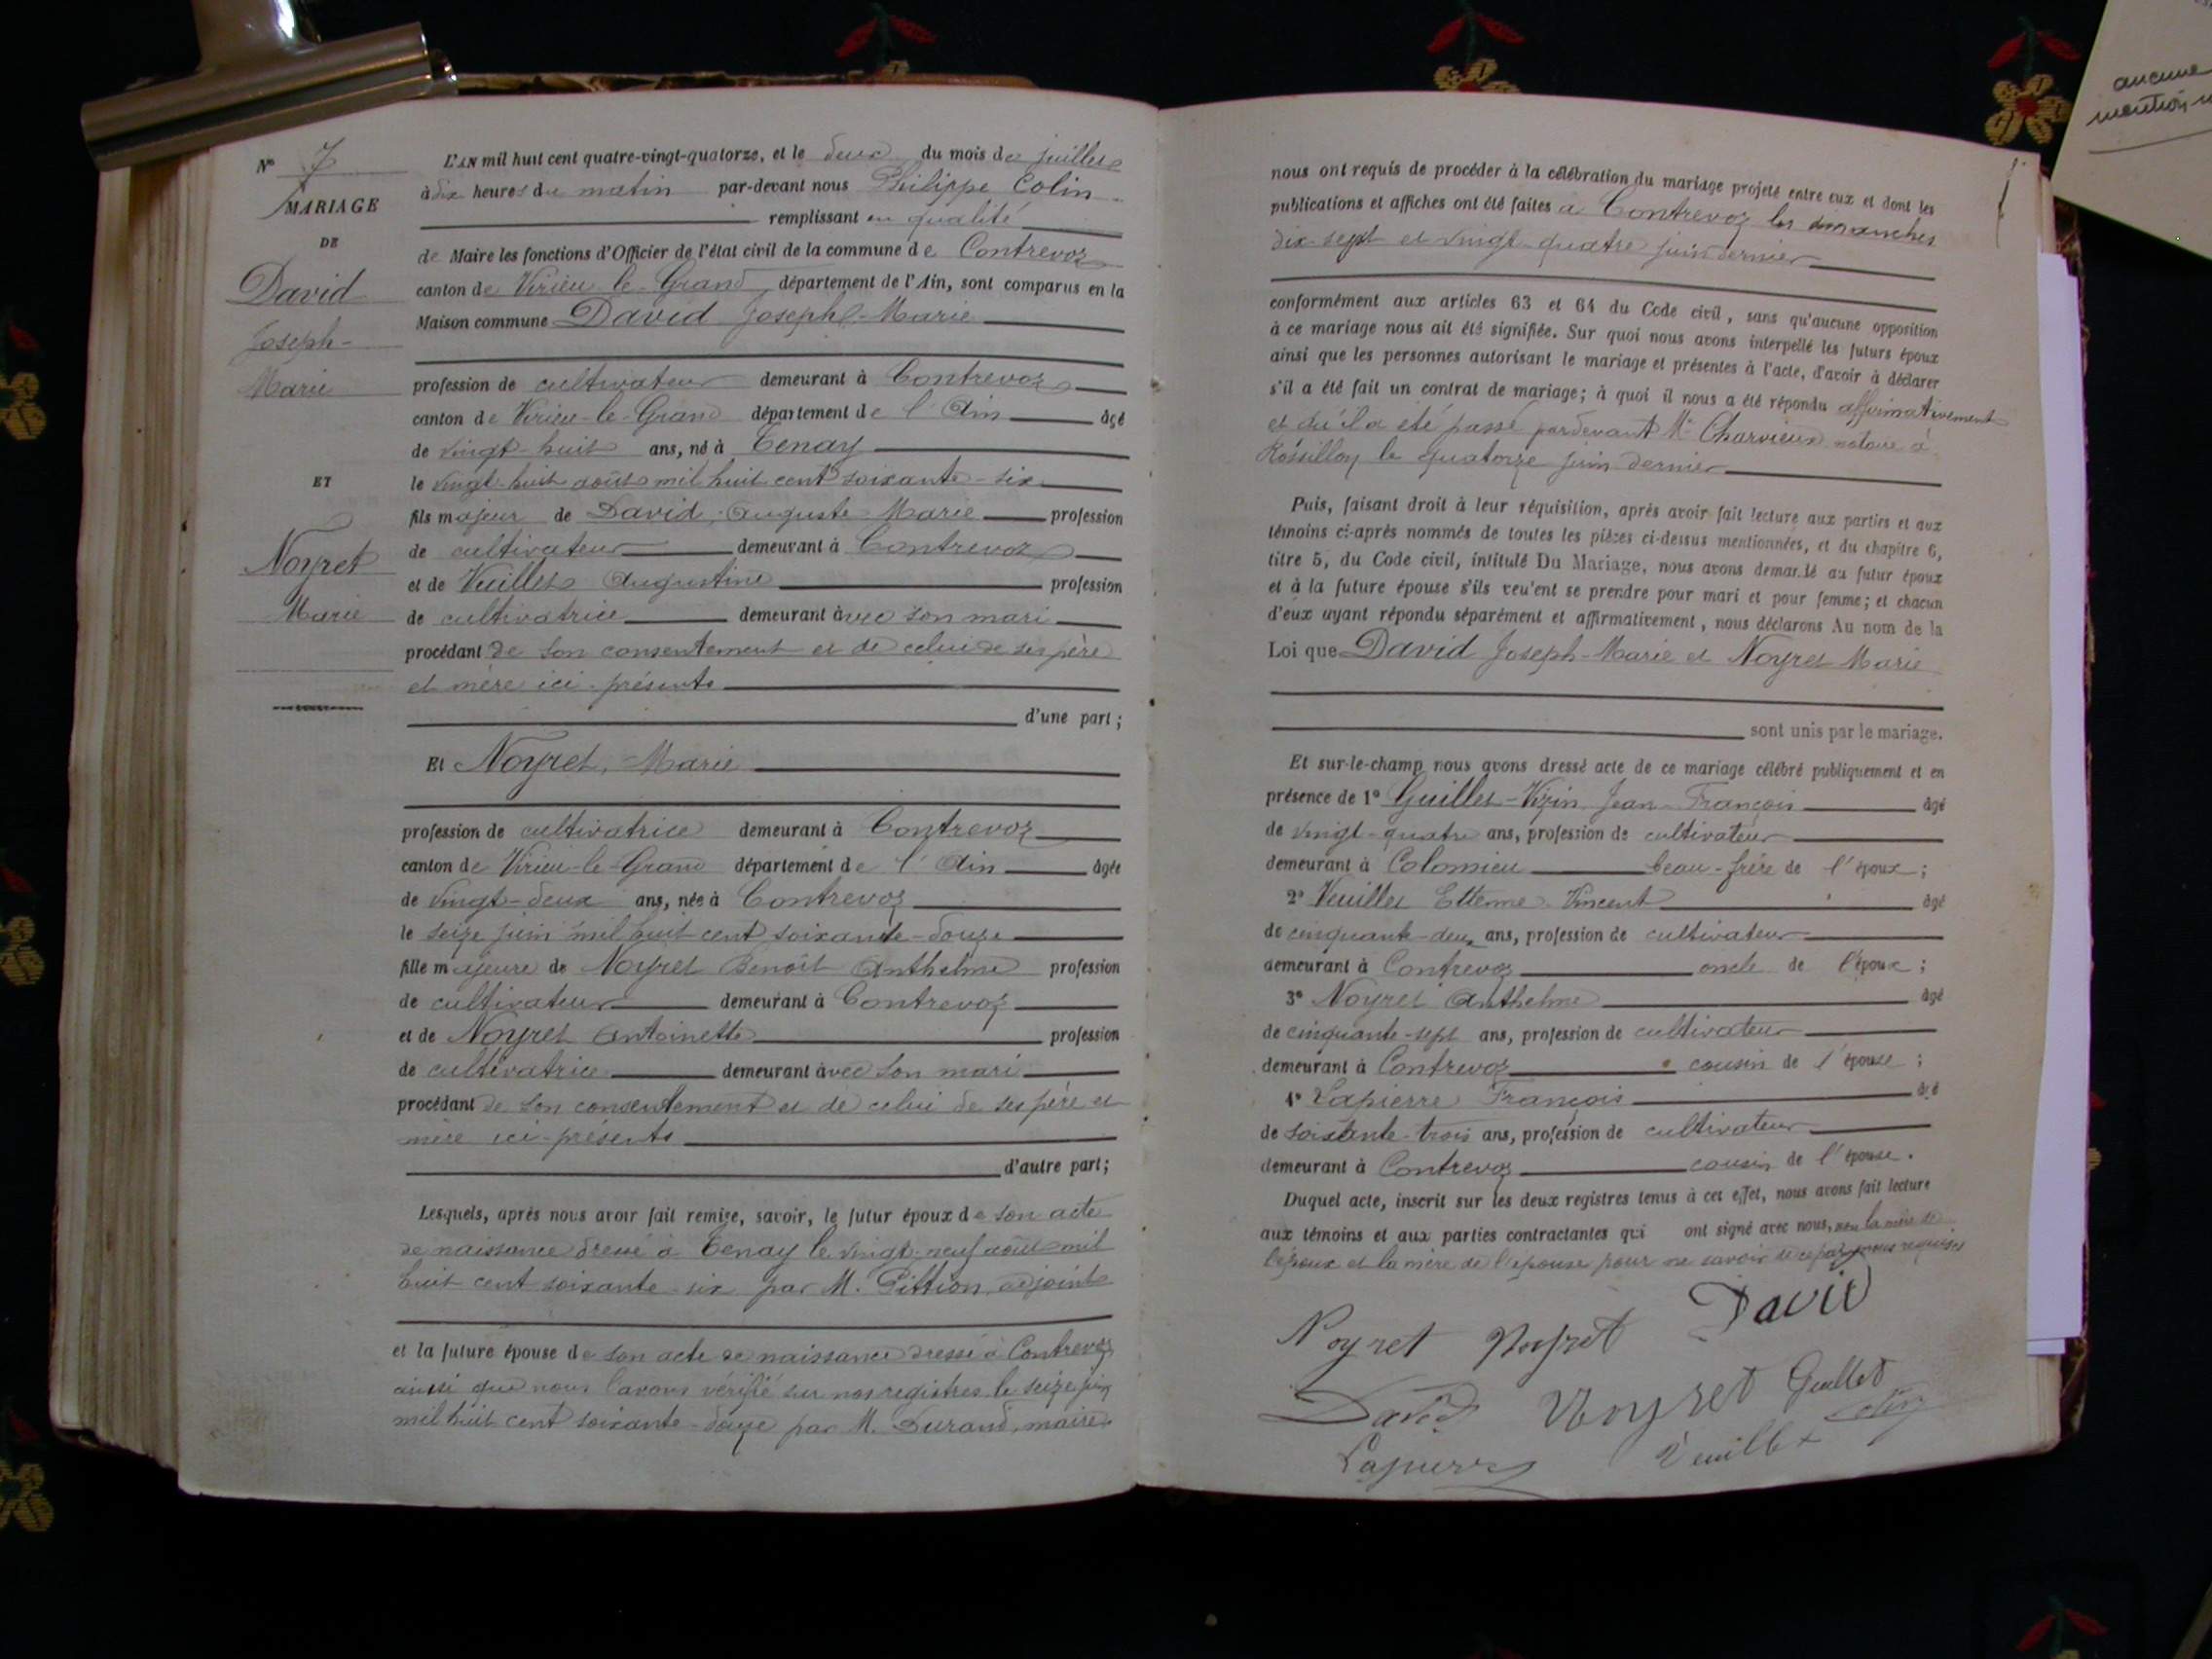 N° 7
MARIAGE
DE
David
Joseph-
Marie
ET
Noyret
Marie
L'AN mil huit cent quatre-vingt-quatorze, et le deux du mois de juillet
à dix heures du matin par-devant nous Philippe Colin
remplissant en qualité
de Maire les fonctions d'Officier de l'état civil de la commune de Contrevoz
canton de Virieu-le-Grand, département de l'Ain, sont comparus en la
Maison commune David Joseph-Marie
profession de cultivateur demeurant à Contrevoz
canton de Virieu-le-Grand département de l'Ain âgé
de vingt-huit ans, né à Tenay
le vingt-huit août mil huit cent soixante-six
fils majeur de David, Auguste Marie profession
de cultivateur demeurant à Contrevoz
et de Veuillet Augustine profession
de cultivatrice demeurant avec son mari
procédant de son consentement et de celui de ses père
et mère ici-présents
d'une part;
Et Noyret, Marie
profession de cultivatrice demeurant à Contrevoz
canton de Virieu-le-Grand département de l'Ain âgée
de vingt-deux ans, née à Contrevoz
le seize juin mil huit cent soixante-douze
fille majeure de Noyret Benoît Anthelme profession
de cultivateur demeurant à Contrevoz
et de Noyret Antoinette profession
de cultivatrice demeurant avec son mari
procédant de son consentement et de celui de ses père et
mère ici-présents
d'autre part;
Lesquels, après nous avoir fait remise, savoir, le futur époux de son acte
de naissance dressé à Tenay le vingt-neuf août mil
huit cent soixante-six par M. Pittion, adjoint
et la future épouse de son acte de naissance dressé à Contrevoz
ainsi que nous l'avons vérifié sur nos registres le seize juin
mil huit cent soixante-douze par M. Durand, maire.
nous ont requis de procéder à la célébration du mariage projeté entre eux et dont les
publications et affiches ont été faites à Contrevoz les dimanches
dix-sept et vingt-quatre juin dernier
conformément aux articles 63 et 64 du Code civil, sans qu'aucune opposition
à ce mariage nous ait été signifiée. Sur quoi nous avons interpellé les futurs époux
ainsi que les personnes autorisant le mariage et présentes à l'acte, d'avoir à déclarer
s'il a été fait un contrat de mariage; à quoi il nous a été répondu affirmativement
et qu'il a été passé pardevant Me Charvieux notaire à
Rossillon le quatorze juin dernier
Puis, faisant droit à leur réquisition, après avoir fait lecture aux parties et aux
témoins ci-après nommés de toutes les pièces ci-dessus mentionnées, et du chapitre 6,
titre 5, du Code civil, intitulé Du Mariage, nous avons demandé au futur époux
et à la future épouse s'ils veulent se prendre pour mari et pour femme; et chacun
d'eux ayant répondu séparément et affirmativement, nous déclarons Au nom de la
Loi que David Joseph-Marie et Noyret Marie
sont unis par le mariage.
Et sur-le-champ nous avons dressé acte de ce mariage célébré publiquement et en
présence de 1° Guillet-Vizin Jean François âgé
de vingt-quatre ans, profession de cultivateur
demeurant à Colomieu beau-frère de l'époux;
2° Veuillet Etienne Vincent âgé
de cinquante-deux ans, profession de cultivateur
demeurant à Contrevoz oncle de l'époux;
3° Noyret Anthelme âgé
de cinquante-sept ans, profession de cultivateur
demeurant à Contrevoz cousin de l'épouse;
4° Lapierre François âgé
de soixante-trois ans, profession de cultivateur
demeurant à Contrevoz cousin de l'épouse.
Duquel acte, inscrit sur les deux registres tenus à cet effet, nous avons fait lecture
aux témoins et aux parties contractantes qui ont signé avec nous, non la mère de
l'époux et la mère de l'épouse pour ne savoir de ce par nous requises
David
Noyret Noyret
David Noyret Guillet
Colin
Lapierre Veuillet
aucune
mention